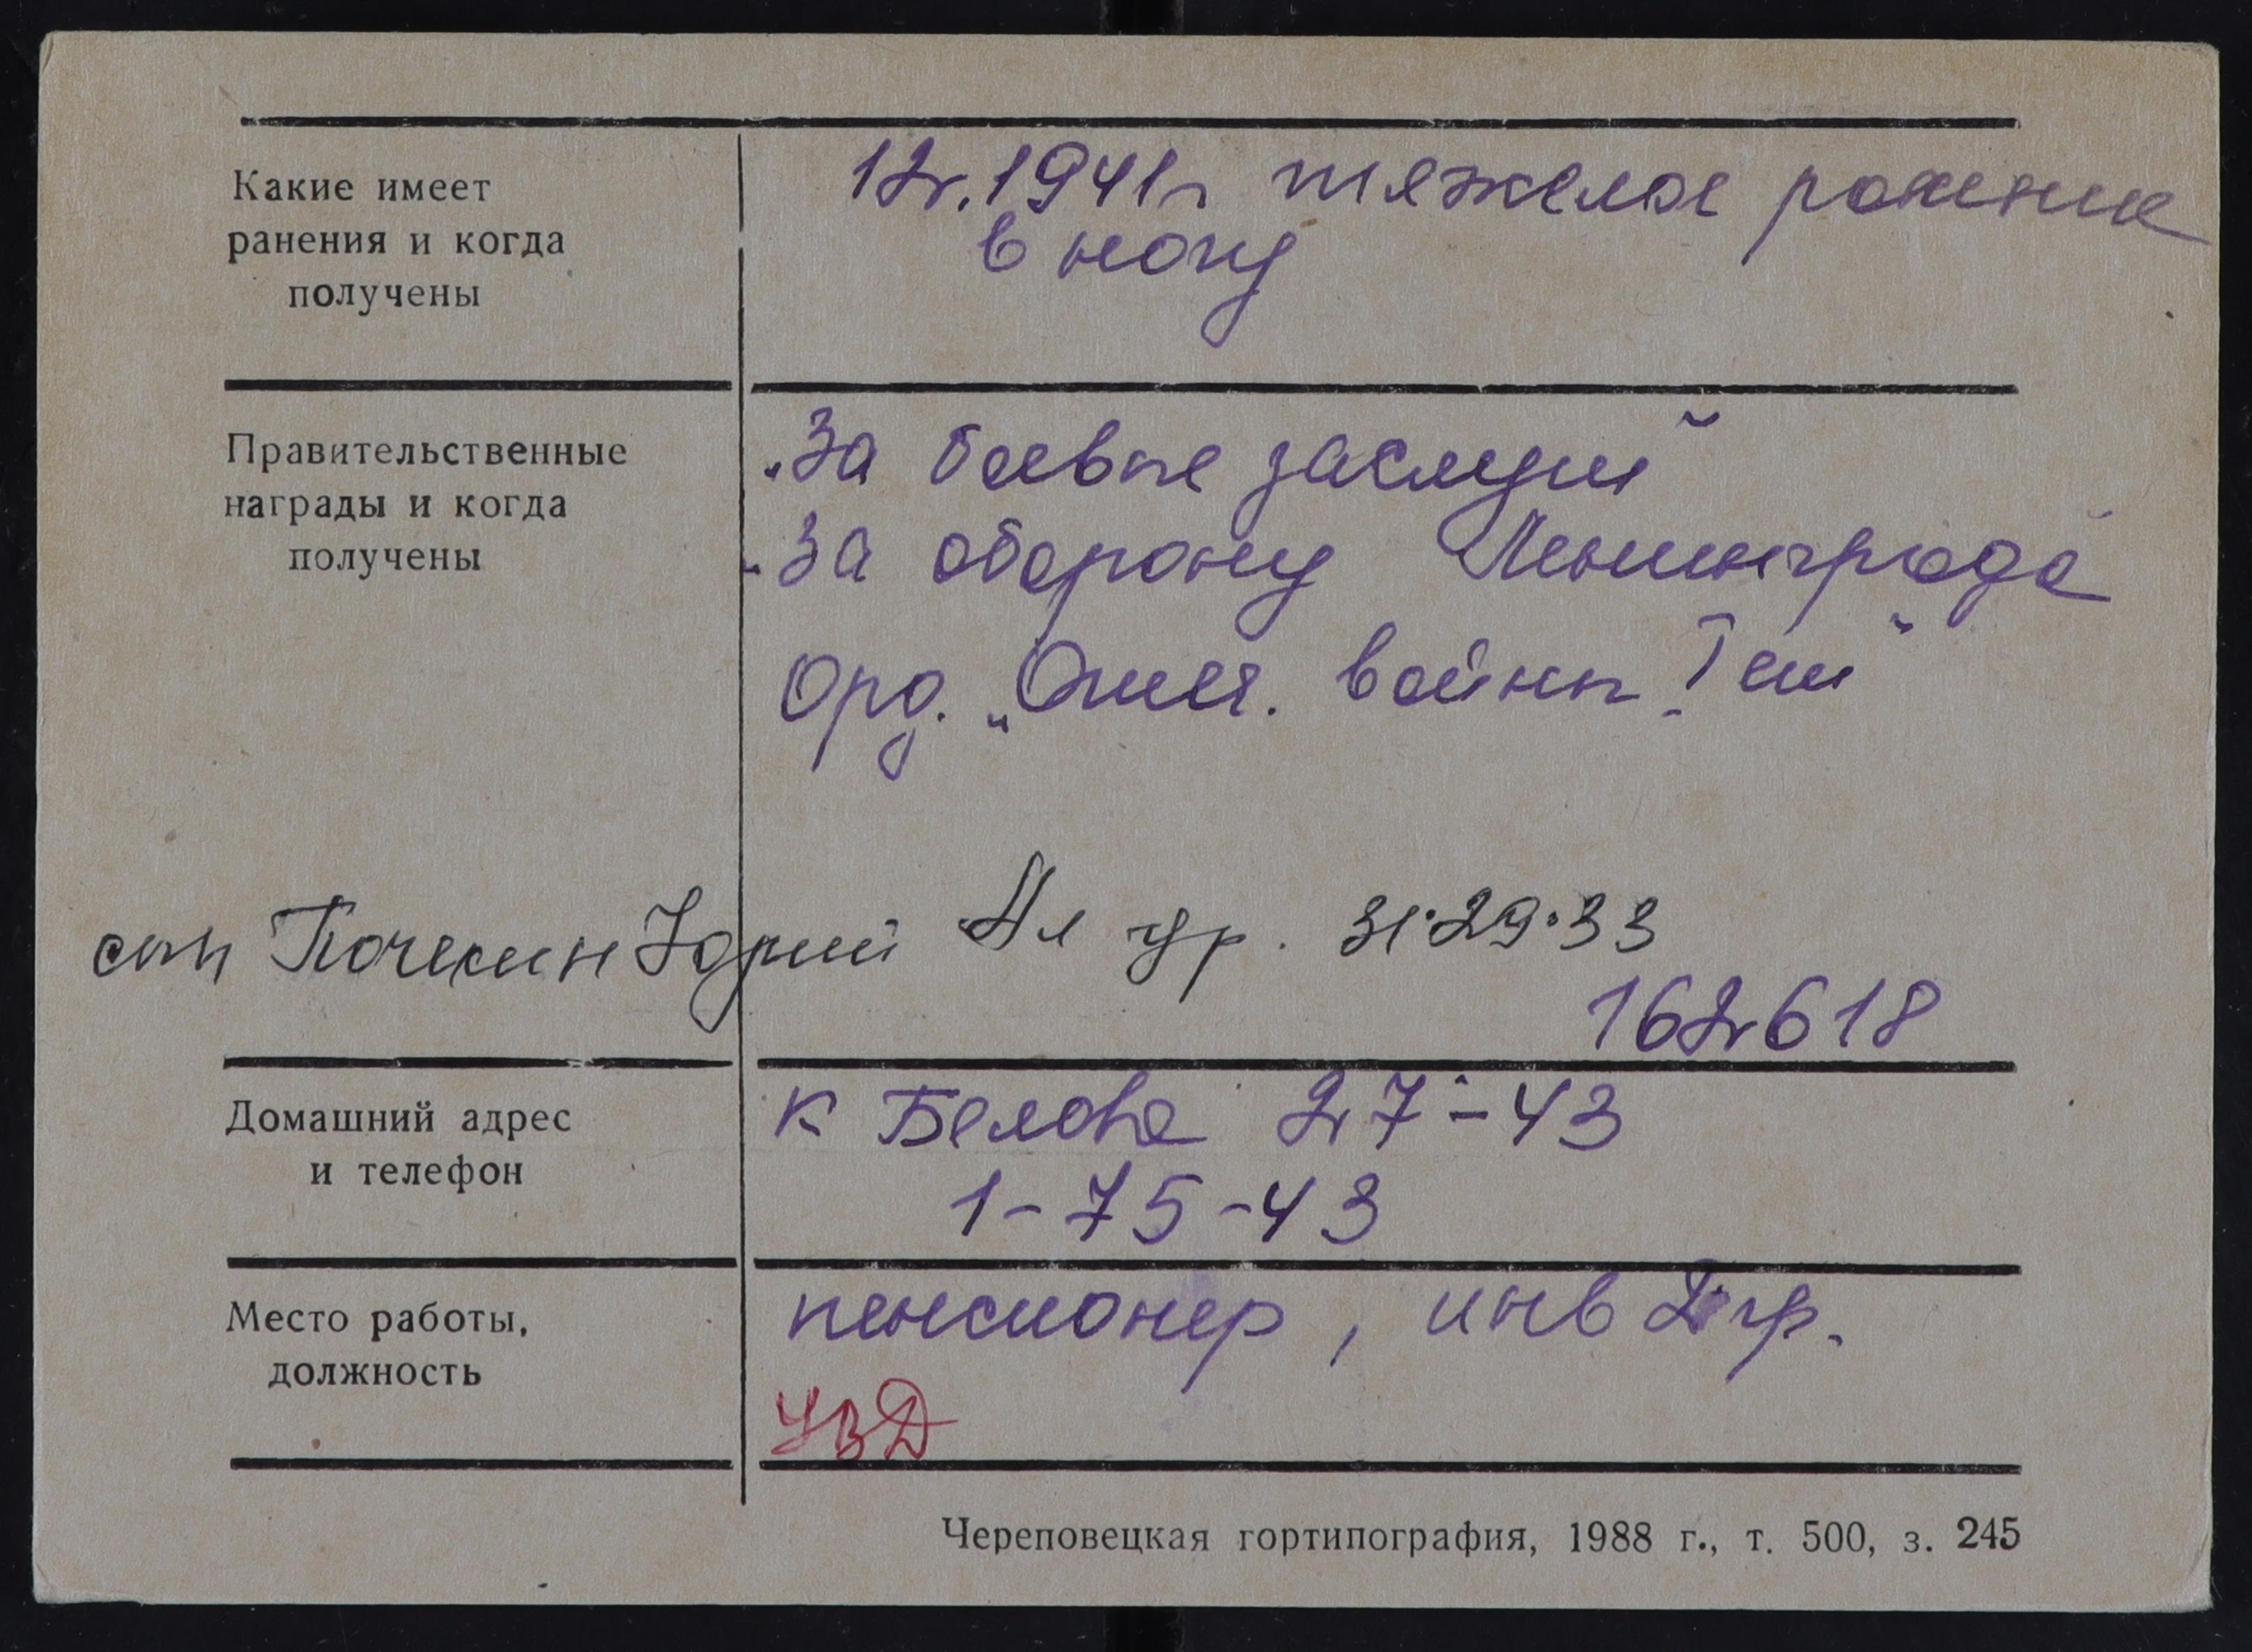 Какие имеет
ранения и когда
получены
12.1941г тяжелое ранение
в ногу
Правительственные
награды и когда
получены
"За боевые заслуги"
"За оборону Ленинграда"
Орд. „Отеч. войны I ст"
сын Почекин Юрий Ал др. 31·29·33
162618
Домашний адрес
и телефон
К Белова 27-43
1-75-43
Место работы,
должность
пенсионер, инв 2 гр.
УВД
Череповецкая гортипография, 1988 г., т. 500, з. 245